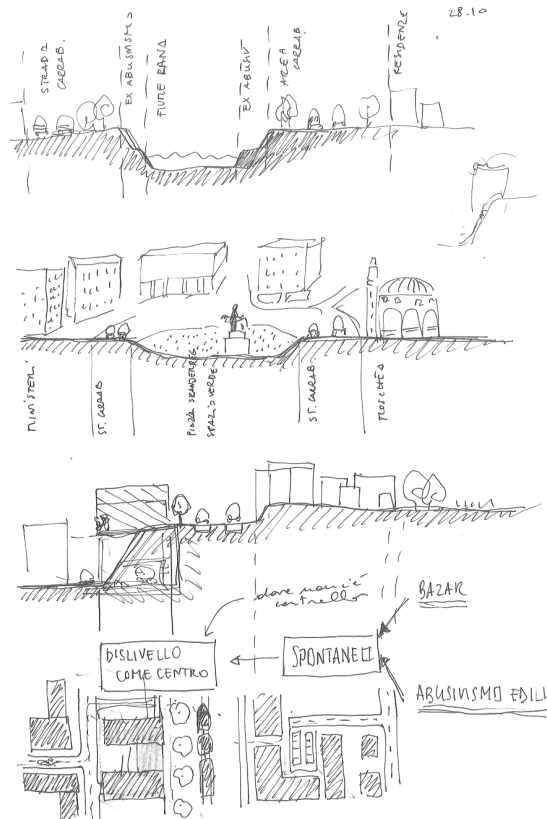 28.10
STRADA
CARRAB.
EX ABUSIVISMO
FIUME LANA
EX ABUSIV
AREA
CARRAB.
RESIDENZE
MINISTERI
ST. CARRAB
PIAZZA SKANDERBEG
SPAZIO VERDE
ST. CARRAB
MOSCHEA
dove non c'è
controllo
BAZAR
DISLIVELLO
COME CENTRO
SPONTANEO
ABUSIVISMO EDILI